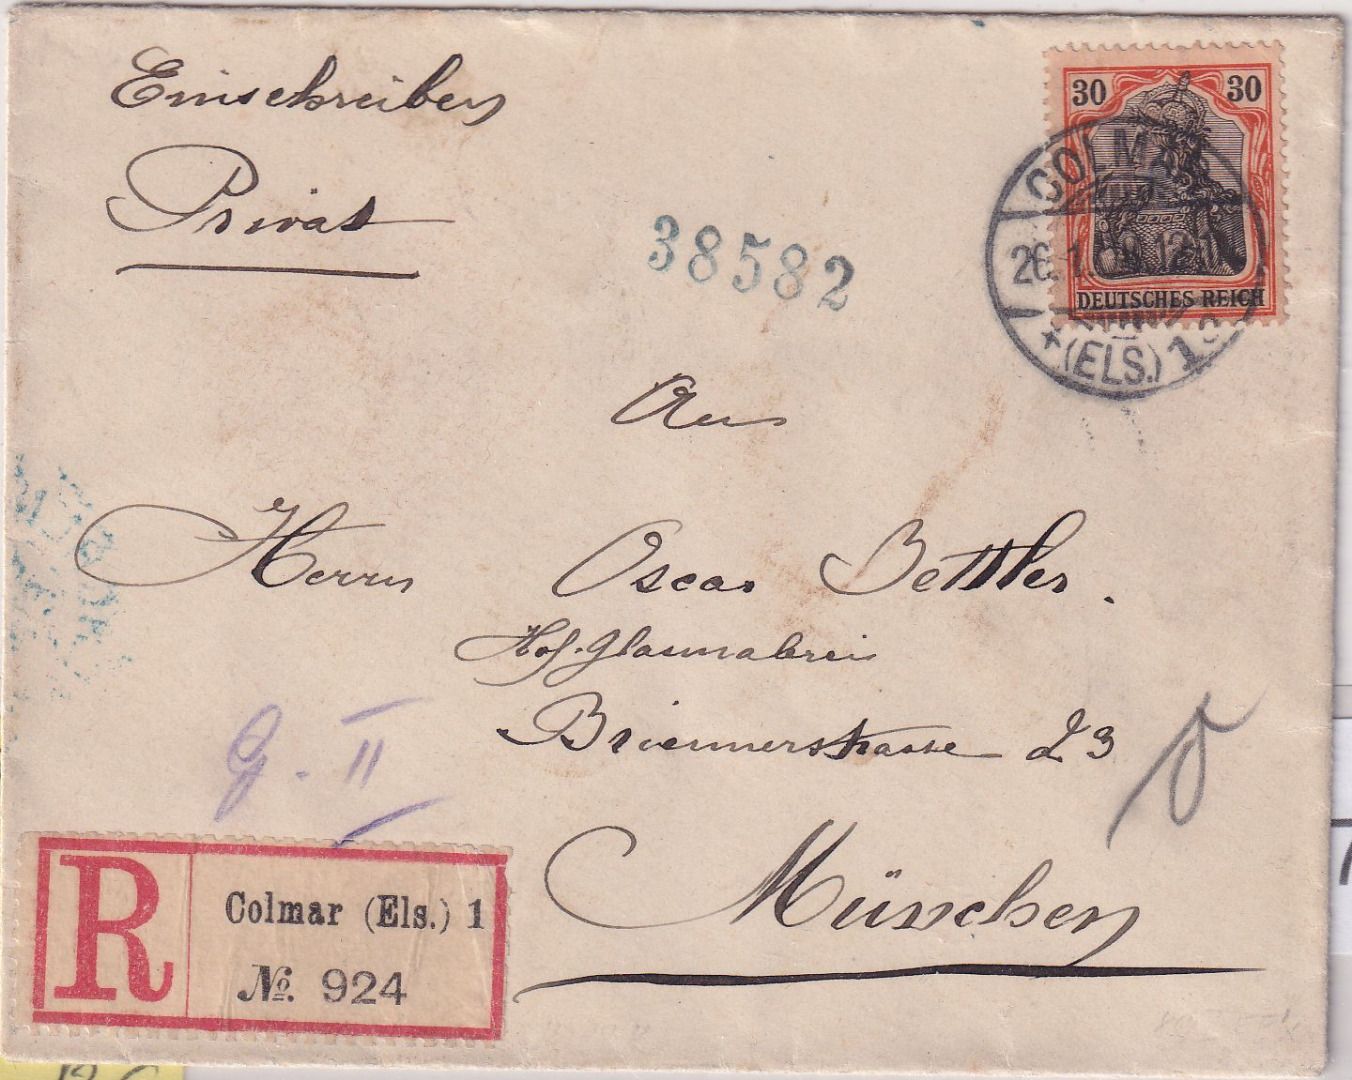 Einschreiben
Privat
30 30
DEUTSCHES REICH
COLMAR
26.1. 12-1
* (ELS.) 1
38582
An
Herrn Oscar Bettler.
Hof. Glasmalerei
Briennerstrasse 23
München
G. II
R Colmar (Els.) 1
№. 924